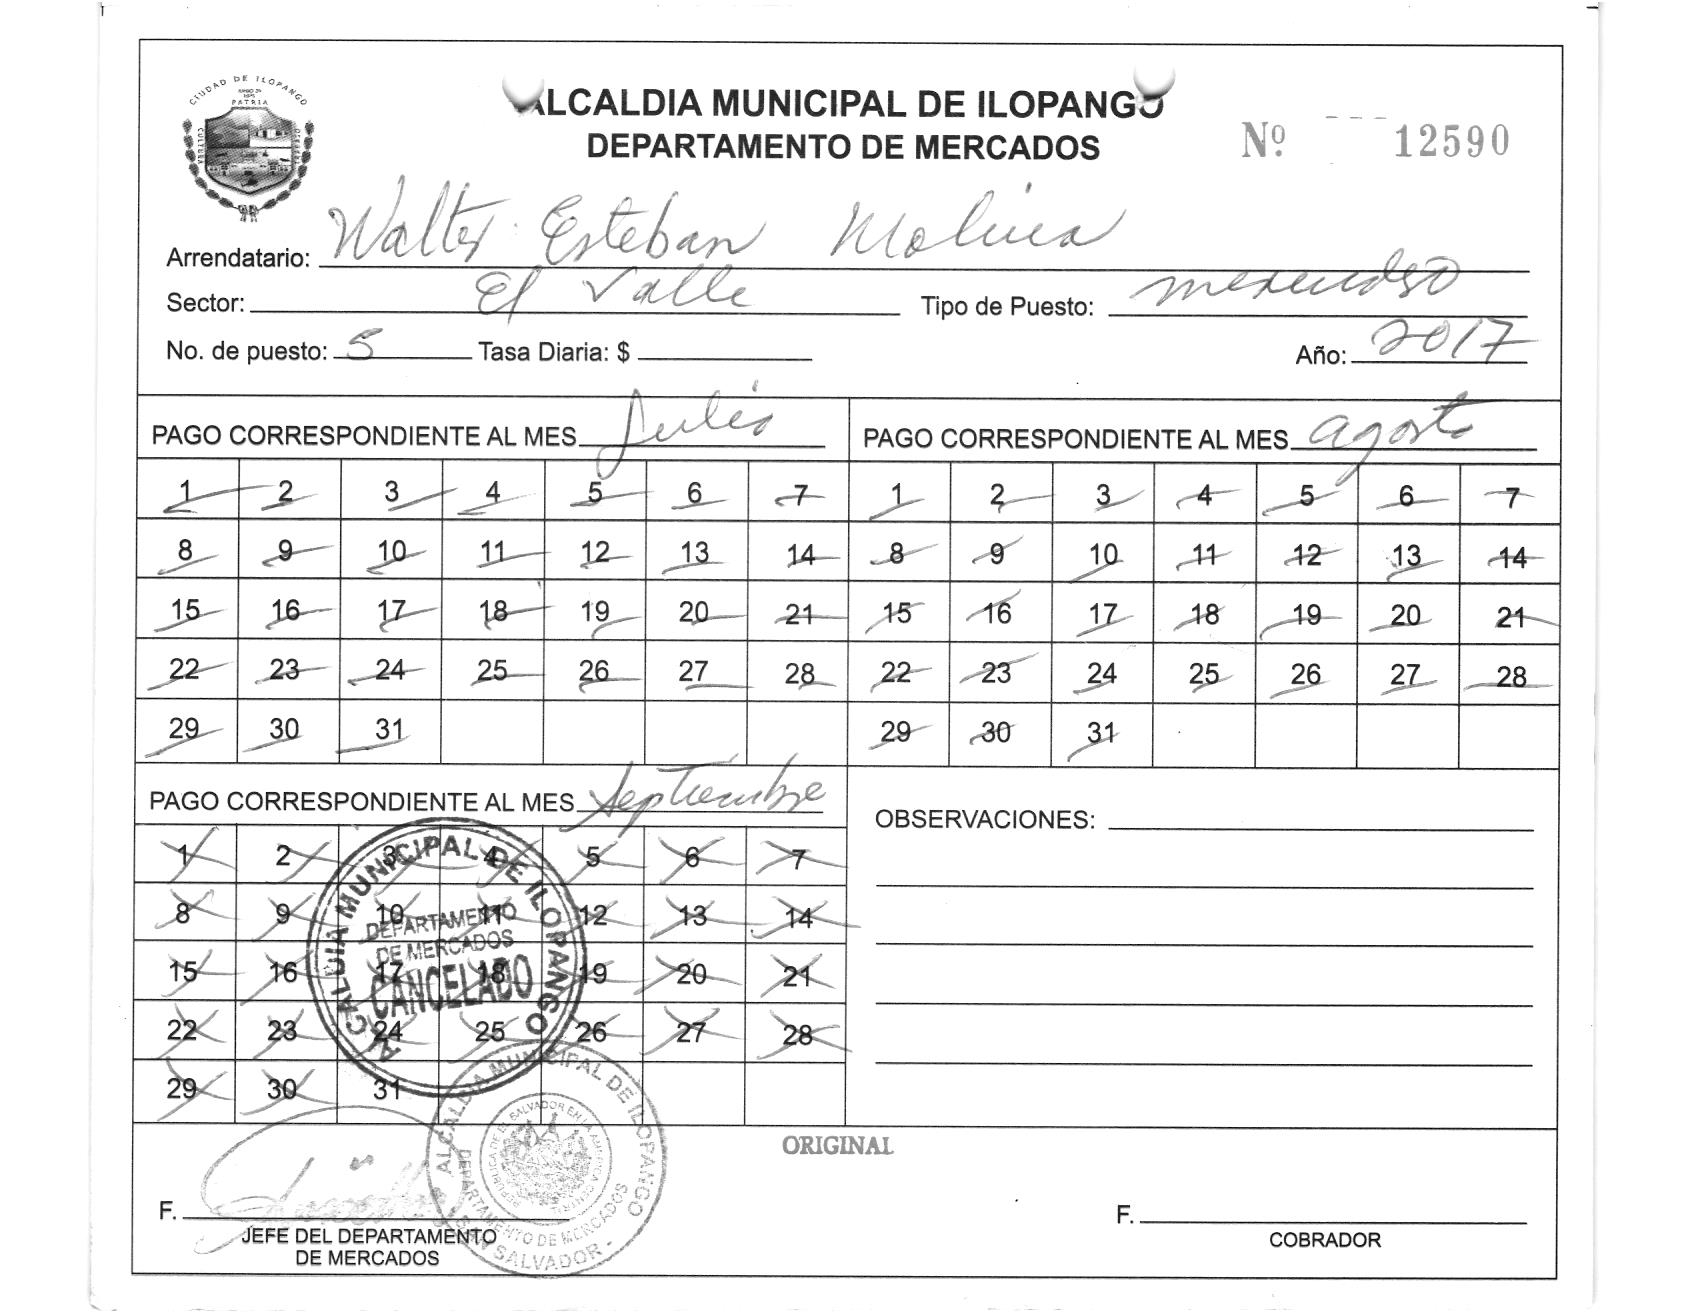 CIUDAD DE ILOPANGO
PATRIA
CULTURA
ALCALDIA MUNICIPAL DE ILOPANGO
DEPARTAMENTO DE MERCADOS
Nº 12590
Arrendatario: Walter Esteban Molina
Sector: El Valle Tipo de Puesto:
No. de puesto: 5 Tasa Diaria: $ Año: 2017
PAGO CORRESPONDIENTE AL MES Julio
1 2 3 4 5 6 7
8 9 10 11 12 13 14
15 16 17 18 19 20 21
22 23 24 25 26 27 28
29 30 31
PAGO CORRESPONDIENTE AL MES agosto
1 2 3 4 5 6 7
8 9 10 11 12 13 14
15 16 17 18 19 20 21
22 23 24 25 26 27 28
29 30 31
PAGO CORRESPONDIENTE AL MES Septiembre
1 2 3 4 5 6 7
8 9 10 11 12 13 14
15 16 17 18 19 20 21
22 23 24 25 26 27 28
29 30 31
ALCALDIA MUNICIPAL DE ILOPANGO
DEPARTAMENTO
DE MERCADOS
CANCELADO
OBSERVACIONES:
ORIGINAL
ALCALDIA MUNICIPAL DE ILOPANGO
DEPARTAMENTO DE MERCADOS
REPUBLICA DE EL SALVADOR EN LA AMERICA CENTRAL
SAN SALVADOR
F.
JEFE DEL DEPARTAMENTO
DE MERCADOS
F.
COBRADOR